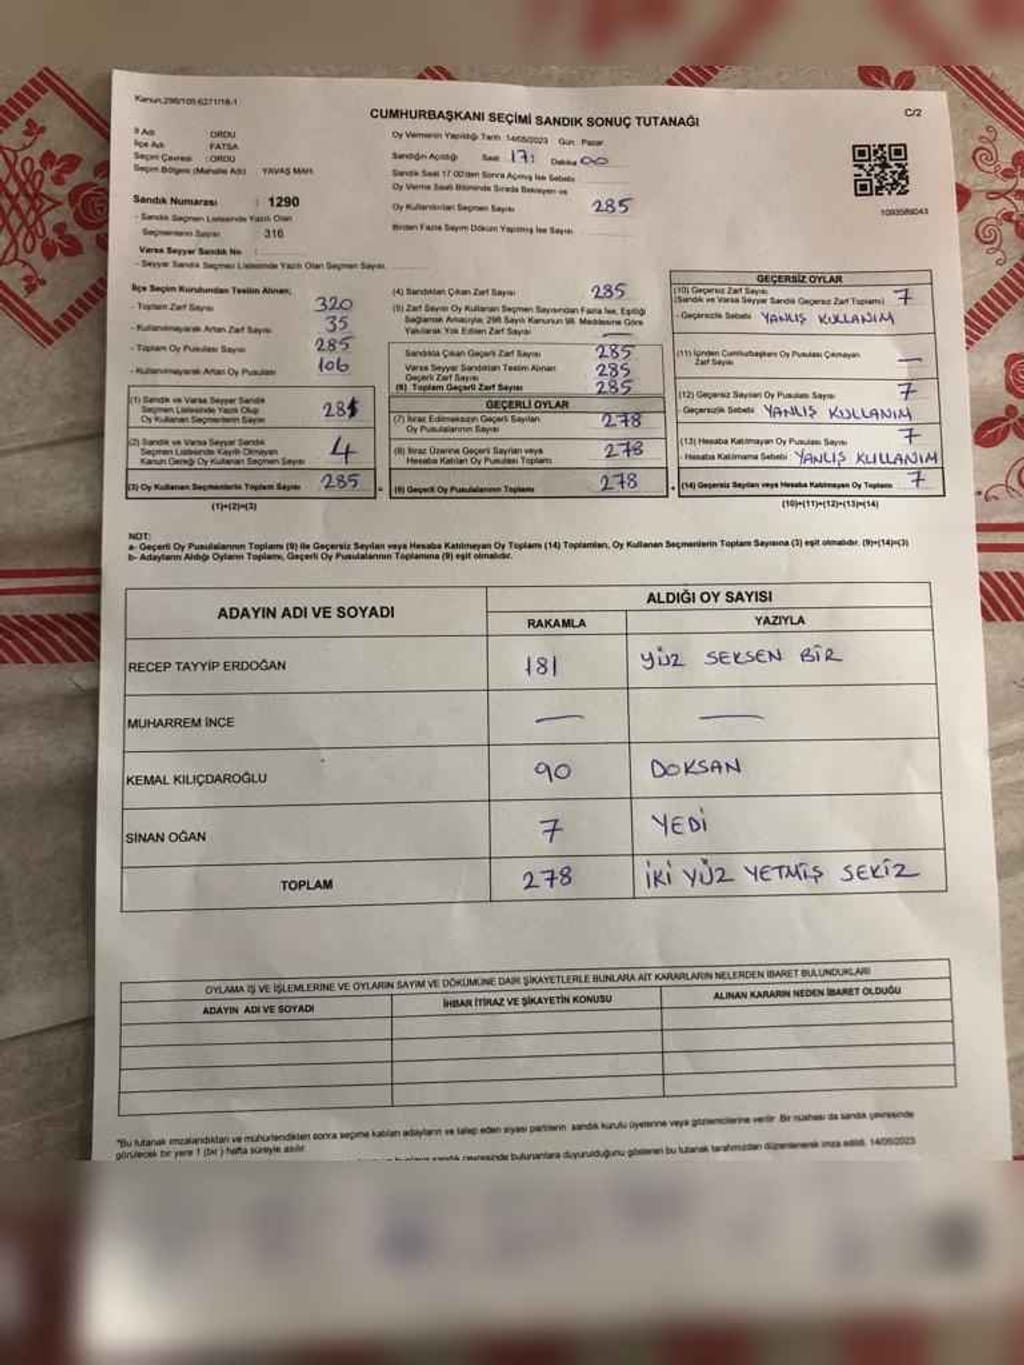 Kanun:298/105:6271/18-1
C/2
CUMHURBAŞKANI SEÇİMİ SANDIK SONUÇ TUTANAĞI
İl Adı : ORDU
İlçe Adı : FATSA
Seçim Çevresi : ORDU
Seçim Bölgesi (Mahalle Adı) : YAVAŞ MAH.
Sandık Numarası : 1290
- Sandık Seçmen Listesinde Yazılı Olan
Seçmenlerin Sayısı : 316
Varsa Seyyar Sandık No :
- Seyyar Sandık Seçmen Listesinde Yazılı Olan Seçmen Sayısı
Oy Vermenin Yapıldığı Tarih : 14/05/2023 Gün : Pazar
Sandığın Açıldığı Saat : 17: Dakika : 00
Sandık Saat 17.00'den Sonra Açılmış İse Sebebi
Oy Verme Saati Bitiminde Sırada Bekleyen ve
Oy Kullandırılan Seçmen Sayısı 285
Birden Fazla Sayım Döküm Yapılmış İse Sayısı
1093589043
İlçe Seçim Kurulundan Teslim Alınan;
- Toplam Zarf Sayısı 320
- Kullanılmayarak Artan Zarf Sayısı 35
- Toplam Oy Pusulası Sayısı 285
- Kullanılmayarak Artan Oy Pusulası 106
(1) Sandık ve Varsa Seyyar Sandık
Seçmen Listesinde Yazılı Olup
Oy Kullanan Seçmenlerin Sayısı 281
(2) Sandık ve Varsa Seyyar Sandık
Seçmen Listesinde Kayıtlı Olmayan
Kanun Gereği Oy Kullanan Seçmen Sayısı 4
(3) Oy Kullanan Seçmenlerin Toplam Sayısı 285 =
(1)+(2)=(3)
(4) Sandıktan Çıkan Zarf Sayısı 285
(5) Zarf Sayısı Oy Kullanan Seçmen Sayısından Fazla İse, Eşitliği
Sağlamak Amacıyla; 298 Sayılı Kanunun 98. Maddesine Göre
Yakılarak Yok Edilen Zarf Sayısı —
Sandıkta Çıkan Geçerli Zarf Sayısı 285
Varsa Seyyar Sandıktan Teslim Alınan
Geçerli Zarf Sayısı 285
(6) Toplam Geçerli Zarf Sayısı 285
GEÇERLİ OYLAR
(7) İtiraz Edilmeksizin Geçerli Sayılan
Oy Pusulalarının Sayısı 278
(8) İtiraz Üzerine Geçerli Sayılan veya
Hesaba Katılan Oy Pusulası Toplamı 278
(9) Geçerli Oy Pusulalarının Toplamı 278 +
GEÇERSİZ OYLAR
(10) Geçersiz Zarf Sayısı
(Sandık ve Varsa Seyyar Sandık Geçersiz Zarf Toplamı) 7
- Geçersizlik Sebebi : YANLIŞ KULLANIM
(11) İçinden Cumhurbaşkanı Oy Pusulası Çıkmayan
Zarf Sayısı —
(12) Geçersiz Sayılan Oy Pusulası Sayısı 7
- Geçersizlik Sebebi : YANLIŞ KULLANIM
(13) Hesaba Katılmayan Oy Pusulası Sayısı 7
- Hesaba Katılmama Sebebi : YANLIŞ KULLANIM
(14) Geçersiz Sayılan veya Hesaba Katılmayan Oy Toplamı 7
(10)+(11)+(12)+(13)=(14)
NOT:
a- Geçerli Oy Pusulalarının Toplamı (9) ile Geçersiz Sayılan veya Hesaba Katılmayan Oy Toplamı (14) Toplamları, Oy Kullanan Seçmenlerin Toplam Sayısına (3) eşit olmalıdır. (9)+(14)=(3)
b- Adayların Aldığı Oyların Toplamı, Geçerli Oy Pusulalarının Toplamına (9) eşit olmalıdır.
ADAYIN ADI VE SOYADI
ALDIĞI OY SAYISI
RAKAMLA YAZIYLA
RECEP TAYYİP ERDOĞAN 181 YÜZ SEKSEN BİR
MUHARREM İNCE — —
KEMAL KILIÇDAROĞLU 90 DOKSAN
SİNAN OĞAN 7 YEDİ
TOPLAM 278 İKİ YÜZ YETMİŞ SEKİZ
OYLAMA İŞ VE İŞLEMLERİNE VE OYLARIN SAYIM VE DÖKÜMÜNE DAİR ŞİKAYETLERLE BUNLARA AİT KARARLARIN NELERDEN İBARET BULUNDUKLARI
ADAYIN ADI VE SOYADI İHBAR İTİRAZ VE ŞİKAYETİN KONUSU ALINAN KARARIN NEDEN İBARET OLDUĞU
*Bu tutanak imzalandıktan ve mühürlendikten sonra seçime katılan adayların ve talep eden siyasi partilerin sandık kurulu üyelerine veya gözlemcilerine verilir. Bir nüshası da sandık çevresinde
görülecek bir yere 1 (bir) hafta süreyle asılır.
sandık çevresinde bulunanlara duyurulduğunu gösteren bu tutanak tarafımızdan düzenlenerek imza edildi. 14/05/2023